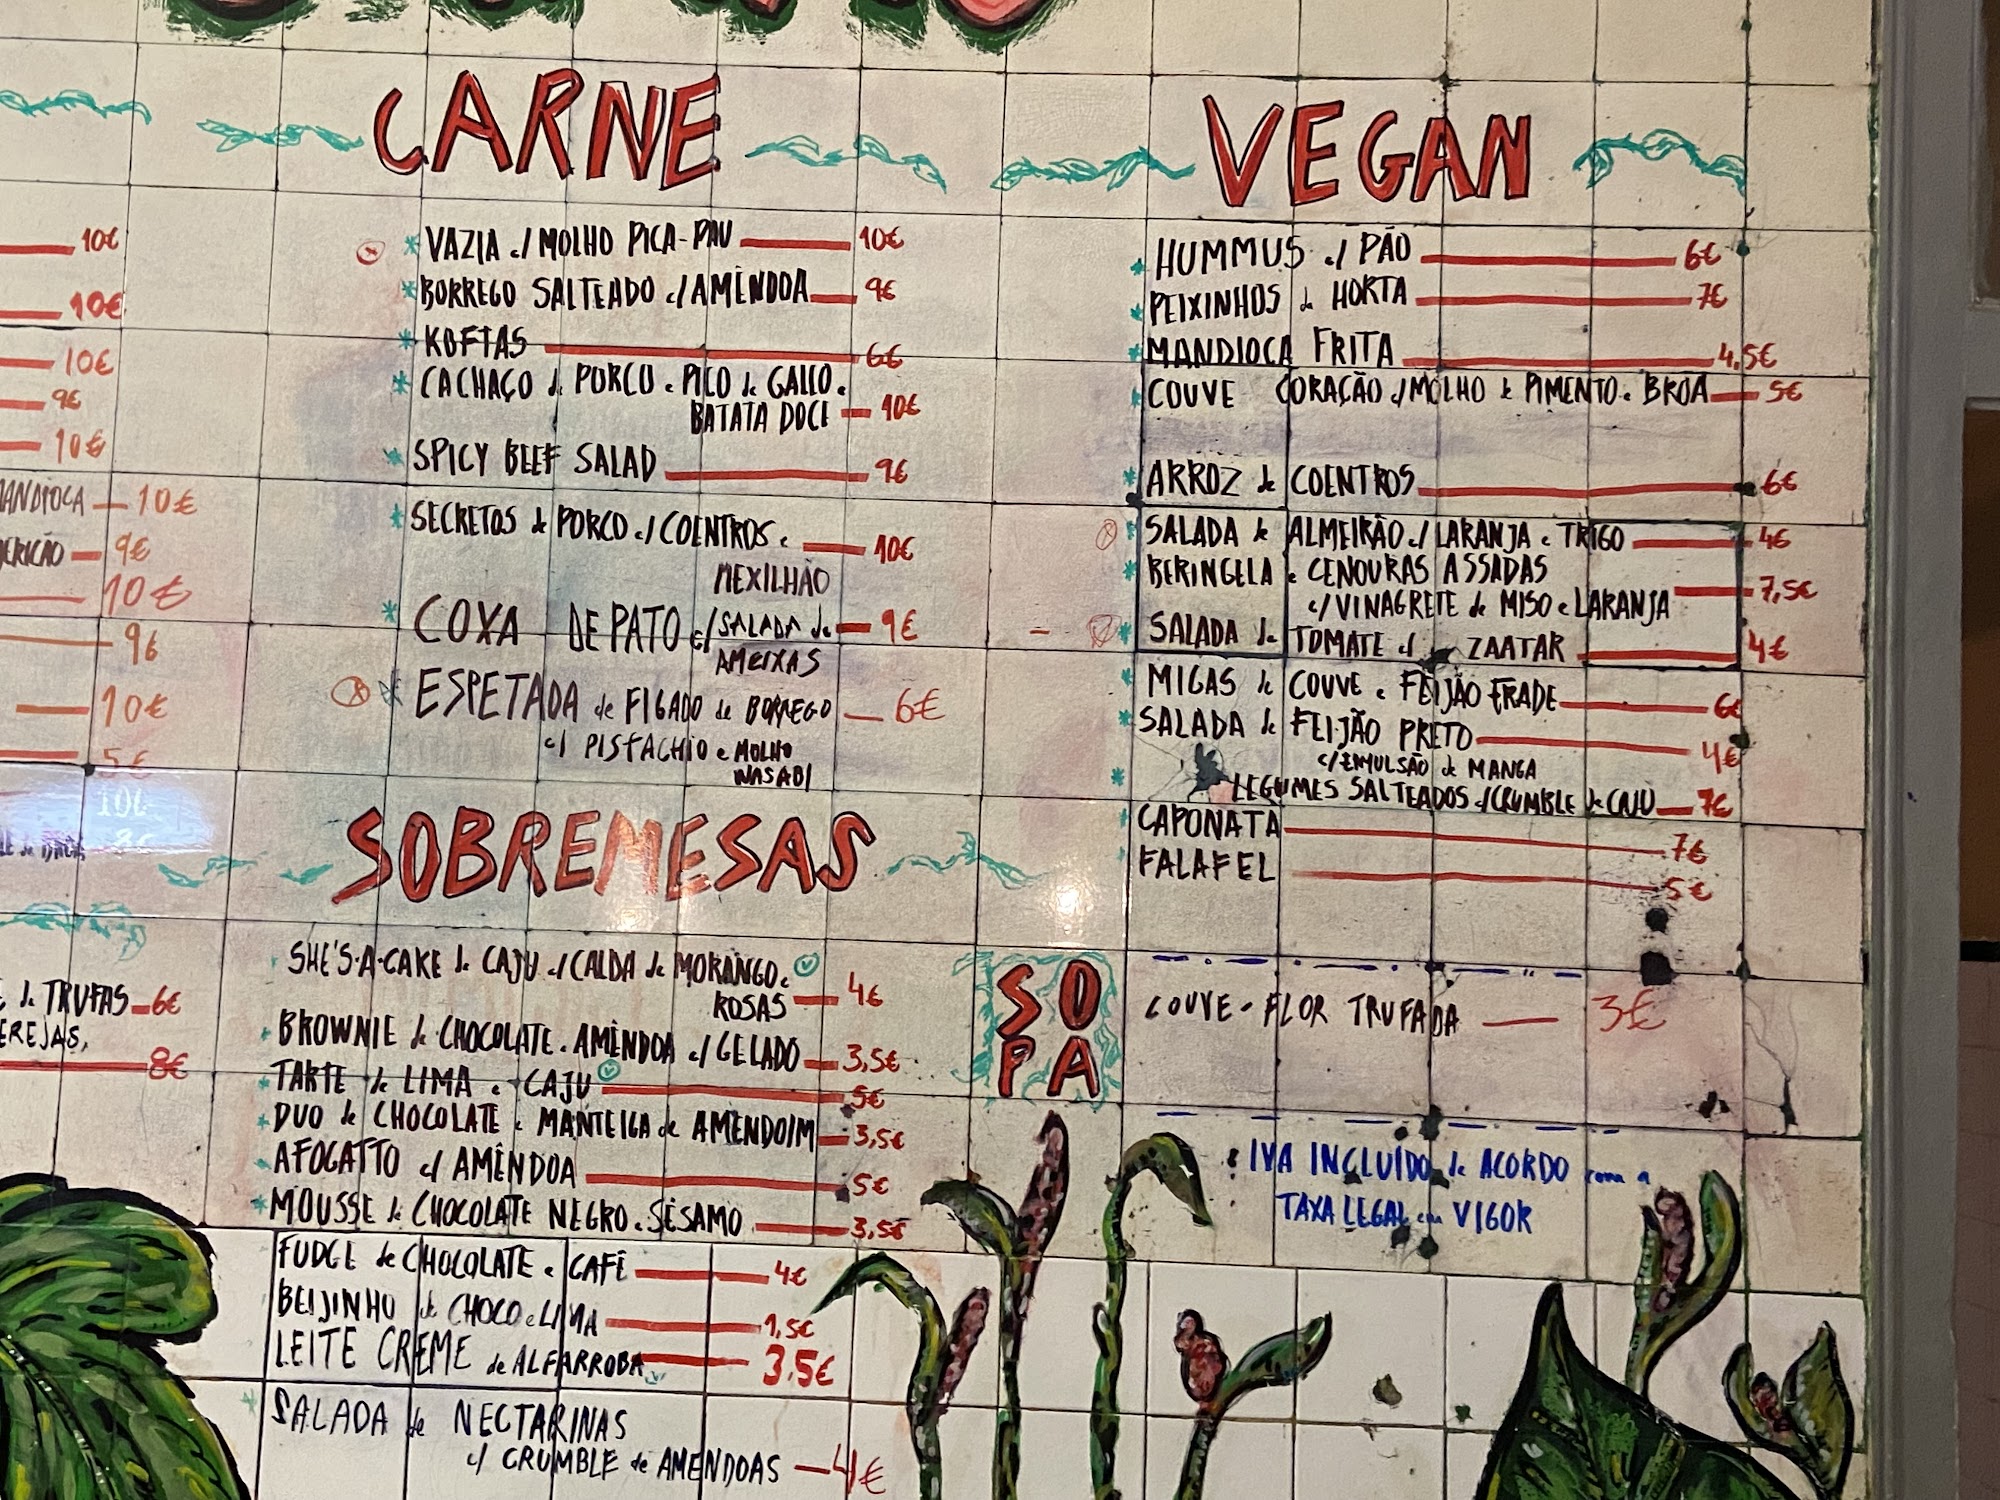 10€
10€
10€
9€
10€
MANDIOCA 10€
9€
10€
9€
10€
5€
10€
8€
de TRUFAS 6€
8€
CARNE
* VAZIA c/ MOLHO PICA-PAU 10€
* BORREGO SALTEADO c/ AMÊNDOA 9€
* KOFTAS 6€
* CACHAÇO de PORCO e PICO de GALLO e
BATATA DOCE 10€
* SPICY BEEF SALAD 9€
* SECRETOS de PORCO c/ COENTROS e 10€
MEXILHÃO
* COXA DE PATO c/ SALADA de 9€
AMEIXAS
* ESPETADA de FIGADO de BORREGO 6€
c/ PISTACHIO e MOLHO
WASABI
SOBREMESAS
SHE'S·A·CAKE de CAJU c/ CALDA de MORANGO e
ROSAS 4€
* BROWNIE de CHOCOLATE e AMÊNDOA c/ GELADO 3,5€
* TARTE de LIMA e CAJU 5€
* DUO de CHOCOLATE e MANTEIGA de AMENDOIM 3,5€
* AFOGATTO c/ AMÊNDOA 5€
* MOUSSE de CHOCOLATE NEGRO e SÉSAMO 3,5€
FUDGE de CHOCOLATE e CAFÉ 4€
BEIJINHO de CHOCO e LIMA 1,5€
LEITE CREME de ALFARROBA 3.5€
* SALADA de NECTARINAS
c/ CRUMBLE de AMENDOAS 4€
VEGAN
* HUMMUS c/ PÃO 6€
* PEIXINHOS da HORTA 7€
* MANDIOCA FRITA 4,5€
* COUVE CORAÇÃO c/ MOLHO de PIMENTO e BROA 5€
* ARROZ de COENTROS 6€
* SALADA de ALMEIRÃO c/ LARANJA e TRIGO 4€
* BERINGELA e CENOURAS ASSADAS
c/ VINAGRETE de MISO e LARANJA 7,5€
* SALADA de TOMATE c/ ZAATAR 4€
* MIGAS de COUVE e FEIJÃO FRADE 6€
* SALADA de FEIJÃO PRETO 4€
c/ EMULSÃO de MANGA
* LEGUMES SALTEADOS c/ CRUMBLE de CAJU 7€
CAPONATA 7€
FALAFEL 5€
SOPA
COUVE-FLOR TRUFADA 3€
IVA INCLUÍDO de ACORDO com a
TAXA LEGAL em VIGOR